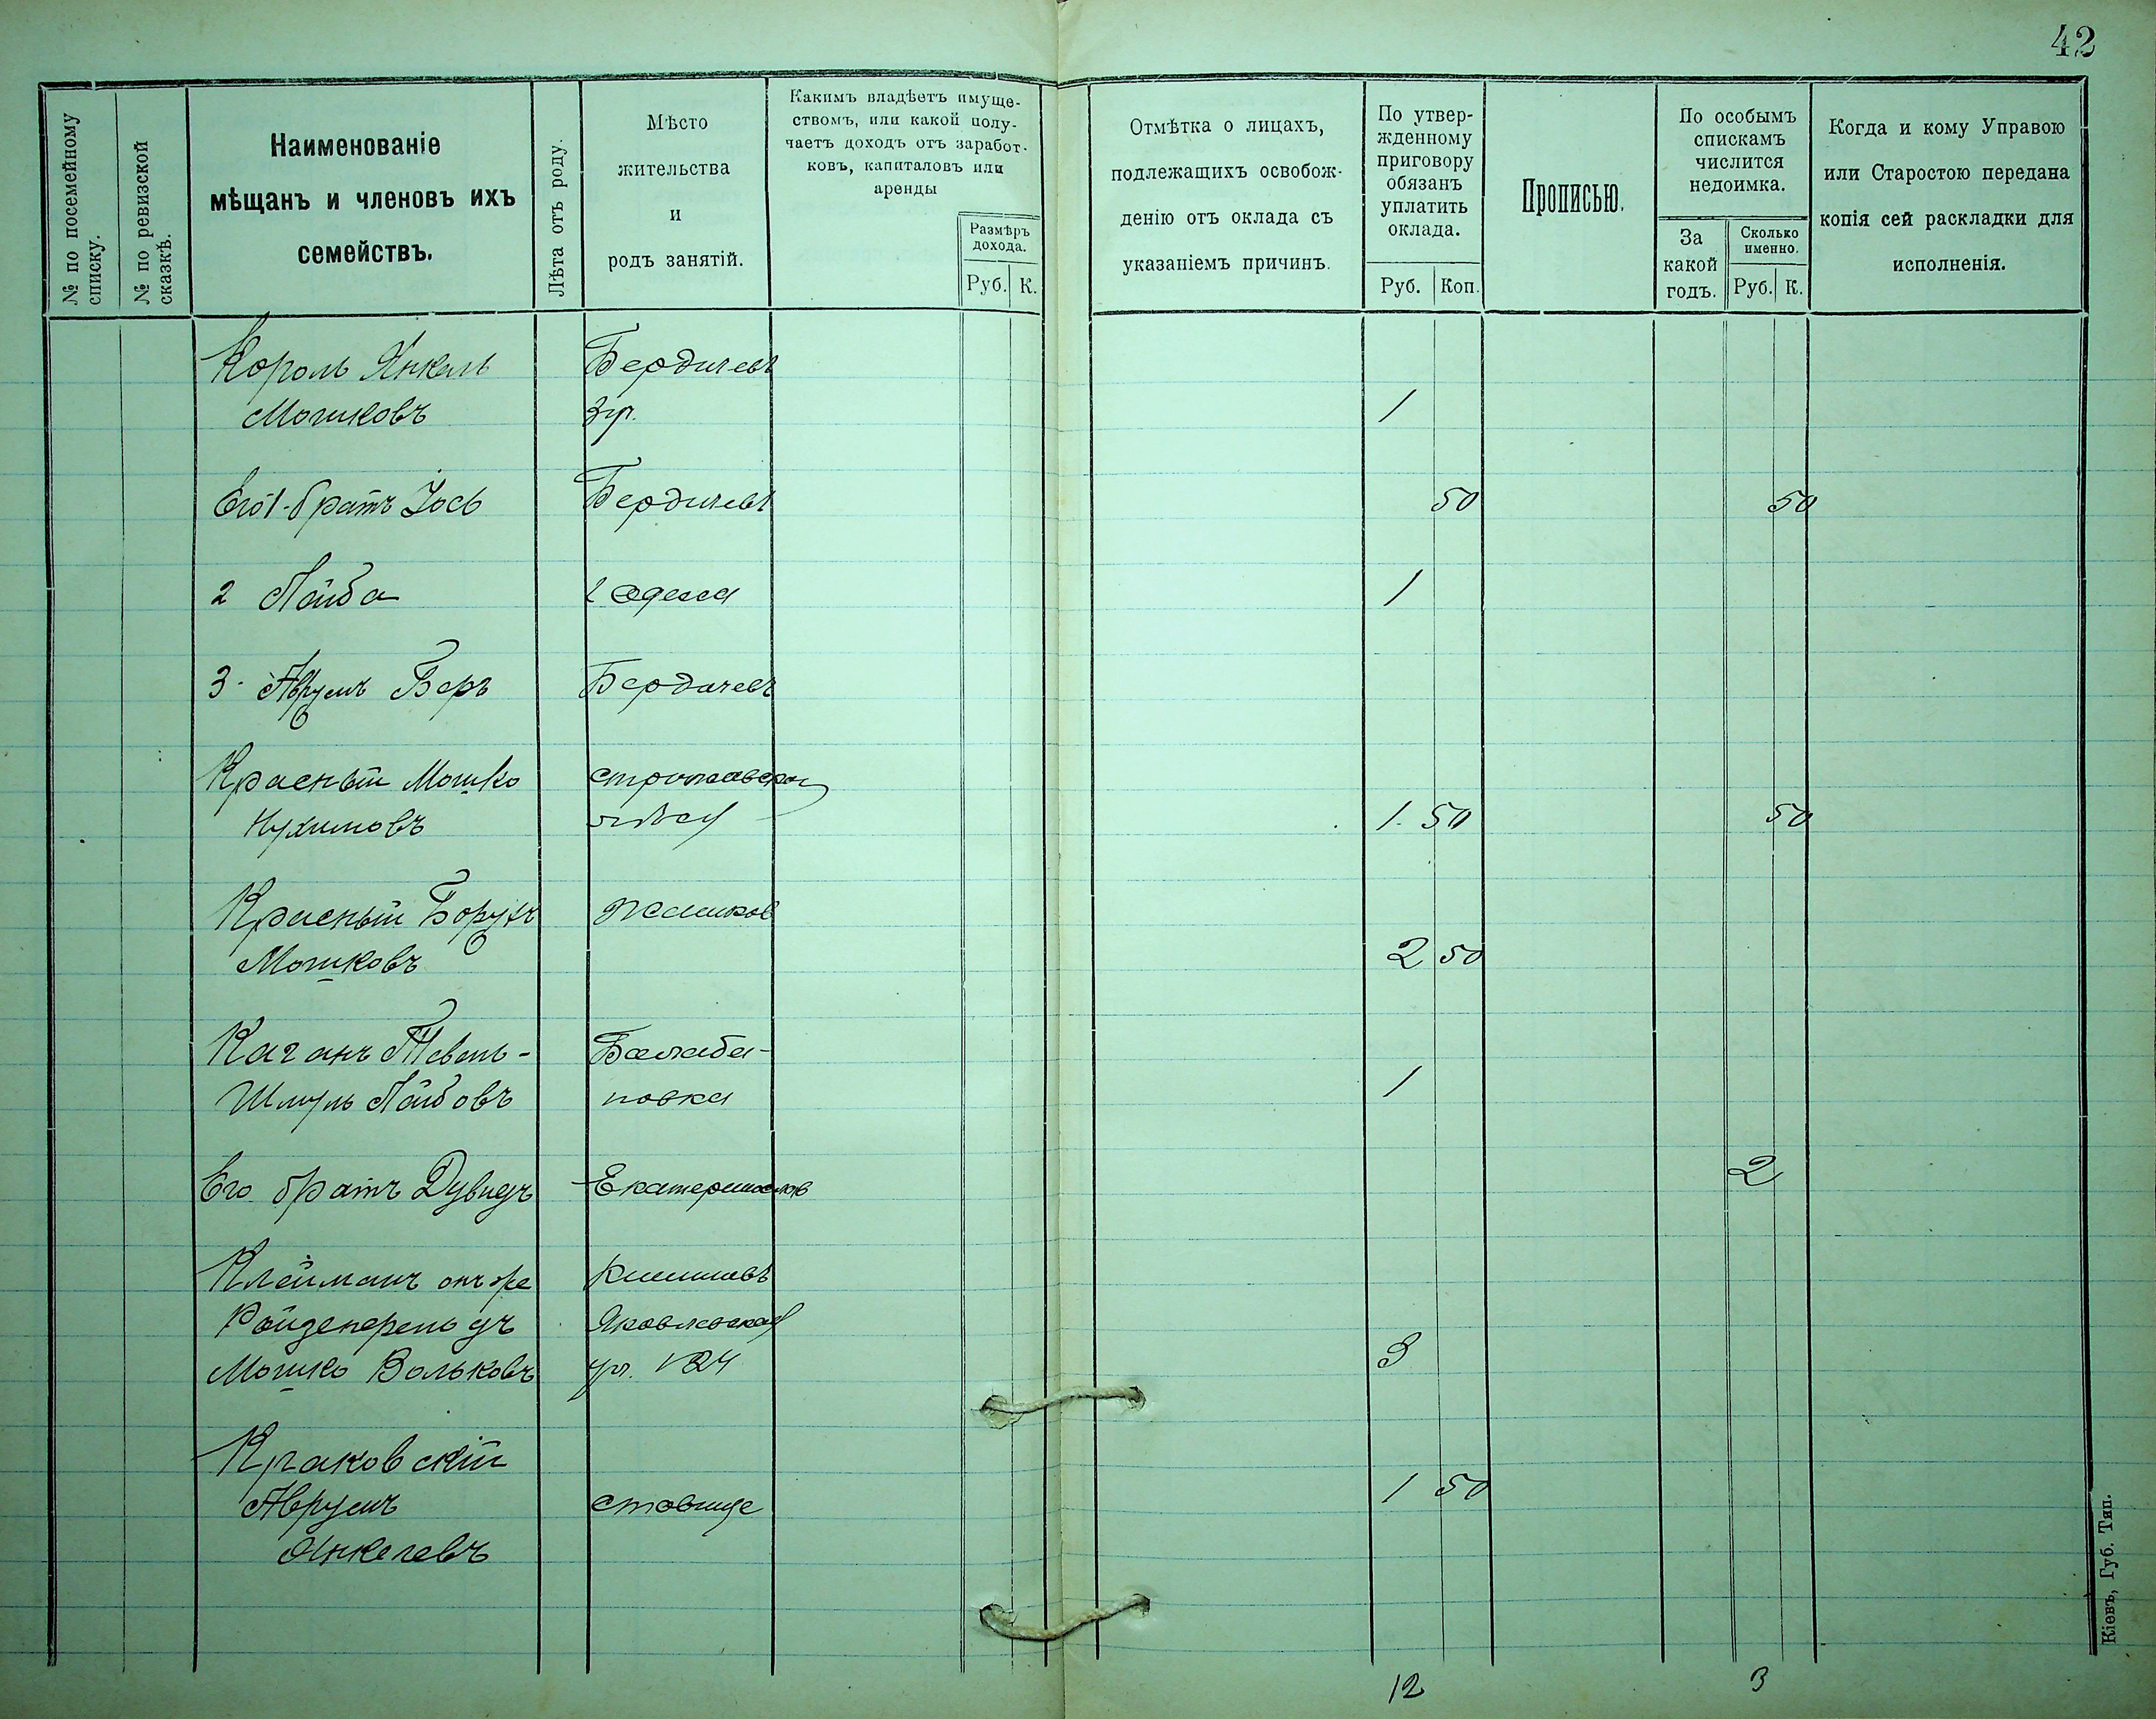 42
№ по посемейному
списку.
№ по ревизской
сказкѣ.
Наименованіе
мѣщанъ и членовъ ихъ
семействъ.
Лѣта отъ роду.
Мѣсто
жительства
и
родъ занятій.
Какимъ владѣетъ имуще-
ствомъ, или какой полу-
чаетъ доходъ отъ заработ-
ковъ, капиталовъ или
аренды
Размѣръ
дохода.
Руб. К.
Отмѣтка о лицахъ,
подлежащихъ освобож-
денію отъ оклада съ
указаніемъ причинъ.
По утвер-
жденному
приговору
обязанъ
уплатить
оклада.
Руб. Коп.
Прописью.
По особымъ
спискамъ
числится
недоимка.
За
какой
годъ.
Сколько
именно.
Руб. К.
Когда и кому Управою
или Старостою передана
копія сей раскладки для
исполненія.
Король Янкель Бердичевъ
Мошковъ 1
Его 1-братъ Іось Бердичевъ 50 50
2 Лейба Одесса 1
3 Аврумъ Беръ Бердичевъ
Красный Мошко
Нухимовъ 1 50 50
Красный Борухъ Жашков
Мошковъ 2 50
Каганъ Тевель- Балаба-
Шмуль Лейбовъ новка 1
Его братъ Дувидъ Екатеринослав 2
Клейманъ онъ же Кишиневъ
Яковлевская
Мошко Вольковъ ул. 3
Краковскій
Аврумъ Ставище 1 50
Янкелевъ
12 3
Кіевъ, Губ. Тип.